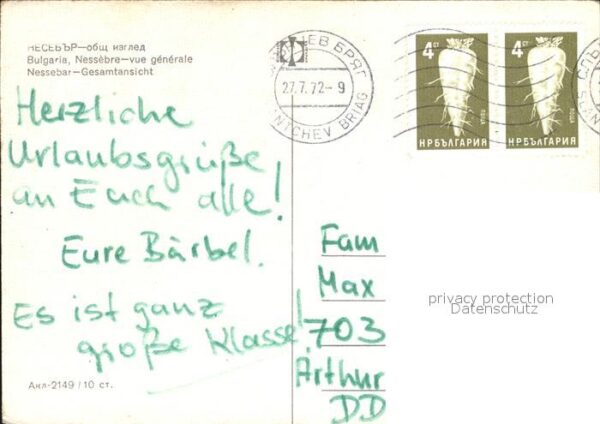 НЕСЕБЪР—общ изглед
Bulgaria, Nessèbre—vue générale
Nessebar—Gesamtansicht
Herzliche
Urlaubsgrüße
an Euch alle!
Eure Bärbel.
Es ist ganz
große Klasse!
Акл-2149 / 10 ст.
БРЯГ
27.7.72-9
NTCHEV BRIAG
4 ст
НРБЪЛГАРИЯ
4 ст
НРБЪЛГАРИЯ
Fam
Max
703
Arthur
DD
privacy protection
Datenschutz